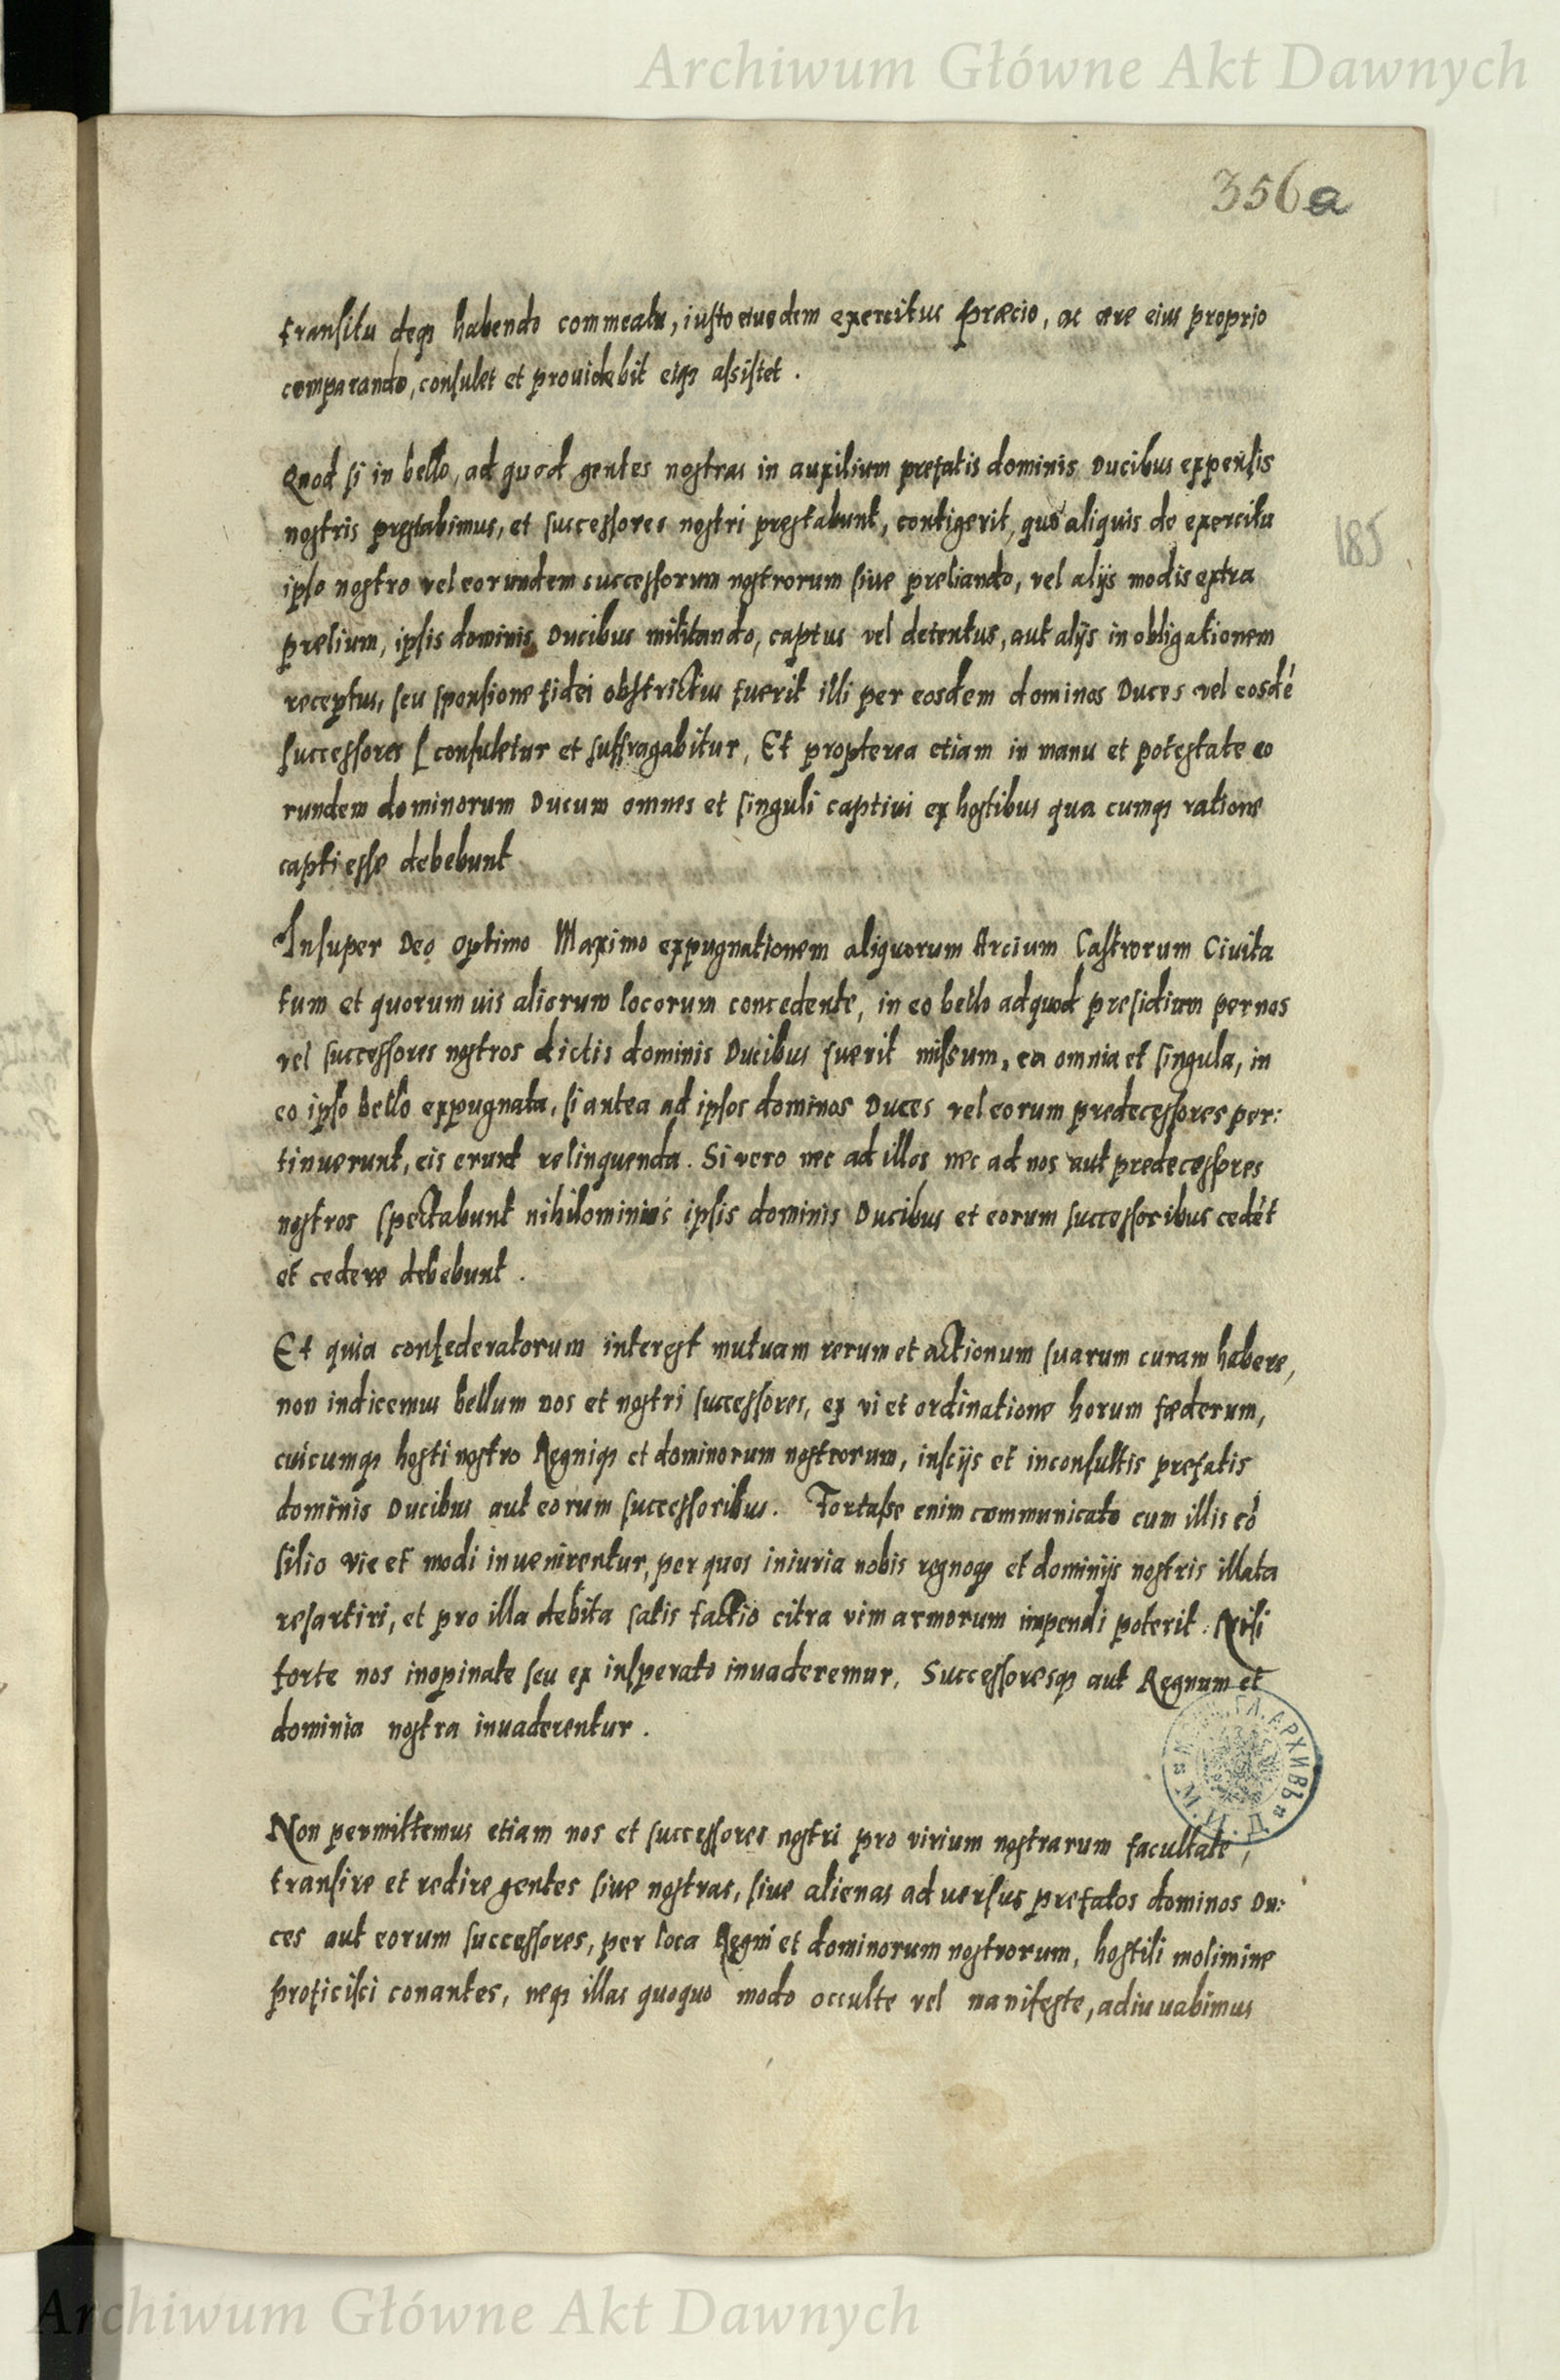 Archiwum Główne Akt Dawnych
356a
transitu deqȝ habendo commeatu, iusto eiusdem exercitus præcio, ac ære eius proprio
comparando, consulet et prouidebit eiqȝ assistet .
Quod si in bello, ad quod gentes nostras in auxilium prefatis dominis Ducibus expensis
nostris prestabimus, et successores nostri prestabunt, contigerit, quo aliquis de exercitu
ipso nostro vel eorundem successorum nostrorum siue preliando, vel alijs modis extra
prelium, ipsis dominis Ducibus militando, captus vel detentus, aut alijs in obligationem
receptus, seu sponsione fidei obstrictus fuerit illi per eosdem dominos Duces vel eosdē
successores [ consuletur et suffragabitur, Et propterea etiam in manu et potestate eo
rundem dominorum Ducum omnes et singuli captiui ex hostibus qua cumqȝ ratione
capti esse debebunt
185
Insuper Deo Optimo Maximo expugnationem aliquorum Arcium Castrorum Ciuita
tum et quorum uis aliorum locorum concedente, in eo bello ad quod presidium per nos
vel successores nostros dictis dominis Ducibus fuerit missum, ea omnia et singula, in
eo ipso bello expugnata, si antea ad ipsos dominos Duces vel eorum predecessores per:
tinuerunt, eis erunt relinquenda. Si vero nec ad illos nec ad nos aut predecessores
nostros spectabunt nihilominus ipsis dominis Ducibus et eorum successoribus cedēt
et cedere debebunt .
Et quia confederatorum interest mutuam rerum et actionum suarum curam habere,
non indicemus bellum nos et nostri successores, ex vi et ordinatione horum fæderum,
cuicumqȝ hosti nostro Regniqȝ et dominorum nostrorum, insciis et inconsultis prefatis
dominis Ducibus aut eorum successoribus. Fortasse enim communicato cum illis cō
silio vie et modi inuenirentur, per quos iniuria nobis regnoqȝ et dominijs nostris illata
resartiri, et pro illa debita satis factio citra vim armorum impendi poterit. Nisi
forte nos inopinate seu ex insperato inuaderemur, Successoresqȝ aut Regnum et
dominia nostra inuaderentur .
Non permittemus etiam nos et successores nostri pro virium nostrarum facultate,
transire et redire gentes siue nostras, siue alienas ad uersus prefatos dominos Du:
ces aut eorum successores, per loca Regni et dominorum nostrorum, hostili molimine
proficisci conantes, neqȝ illas quoquo modo occulte vel manifeste, adiu uabimus
Archiwum Główne Akt Dawnych